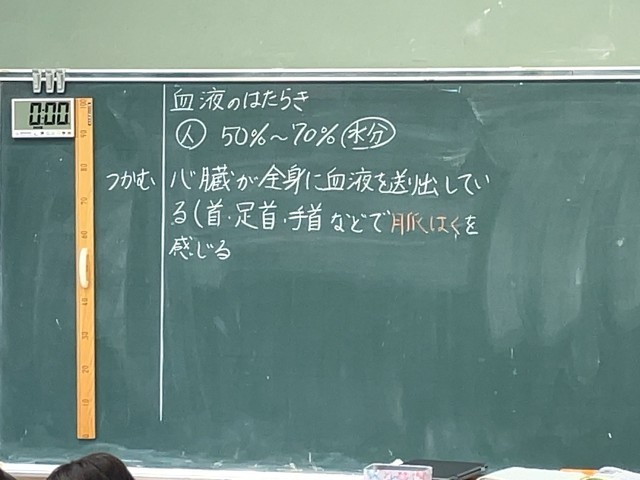 血液のはたらき
人 50%～70%(水分)
つかむ
心臓が全身に血液を送り出してい
る(首・足首・手首などで脈はくを
感じる
0:00
100
90
80
70
60
40
30
20
10
0